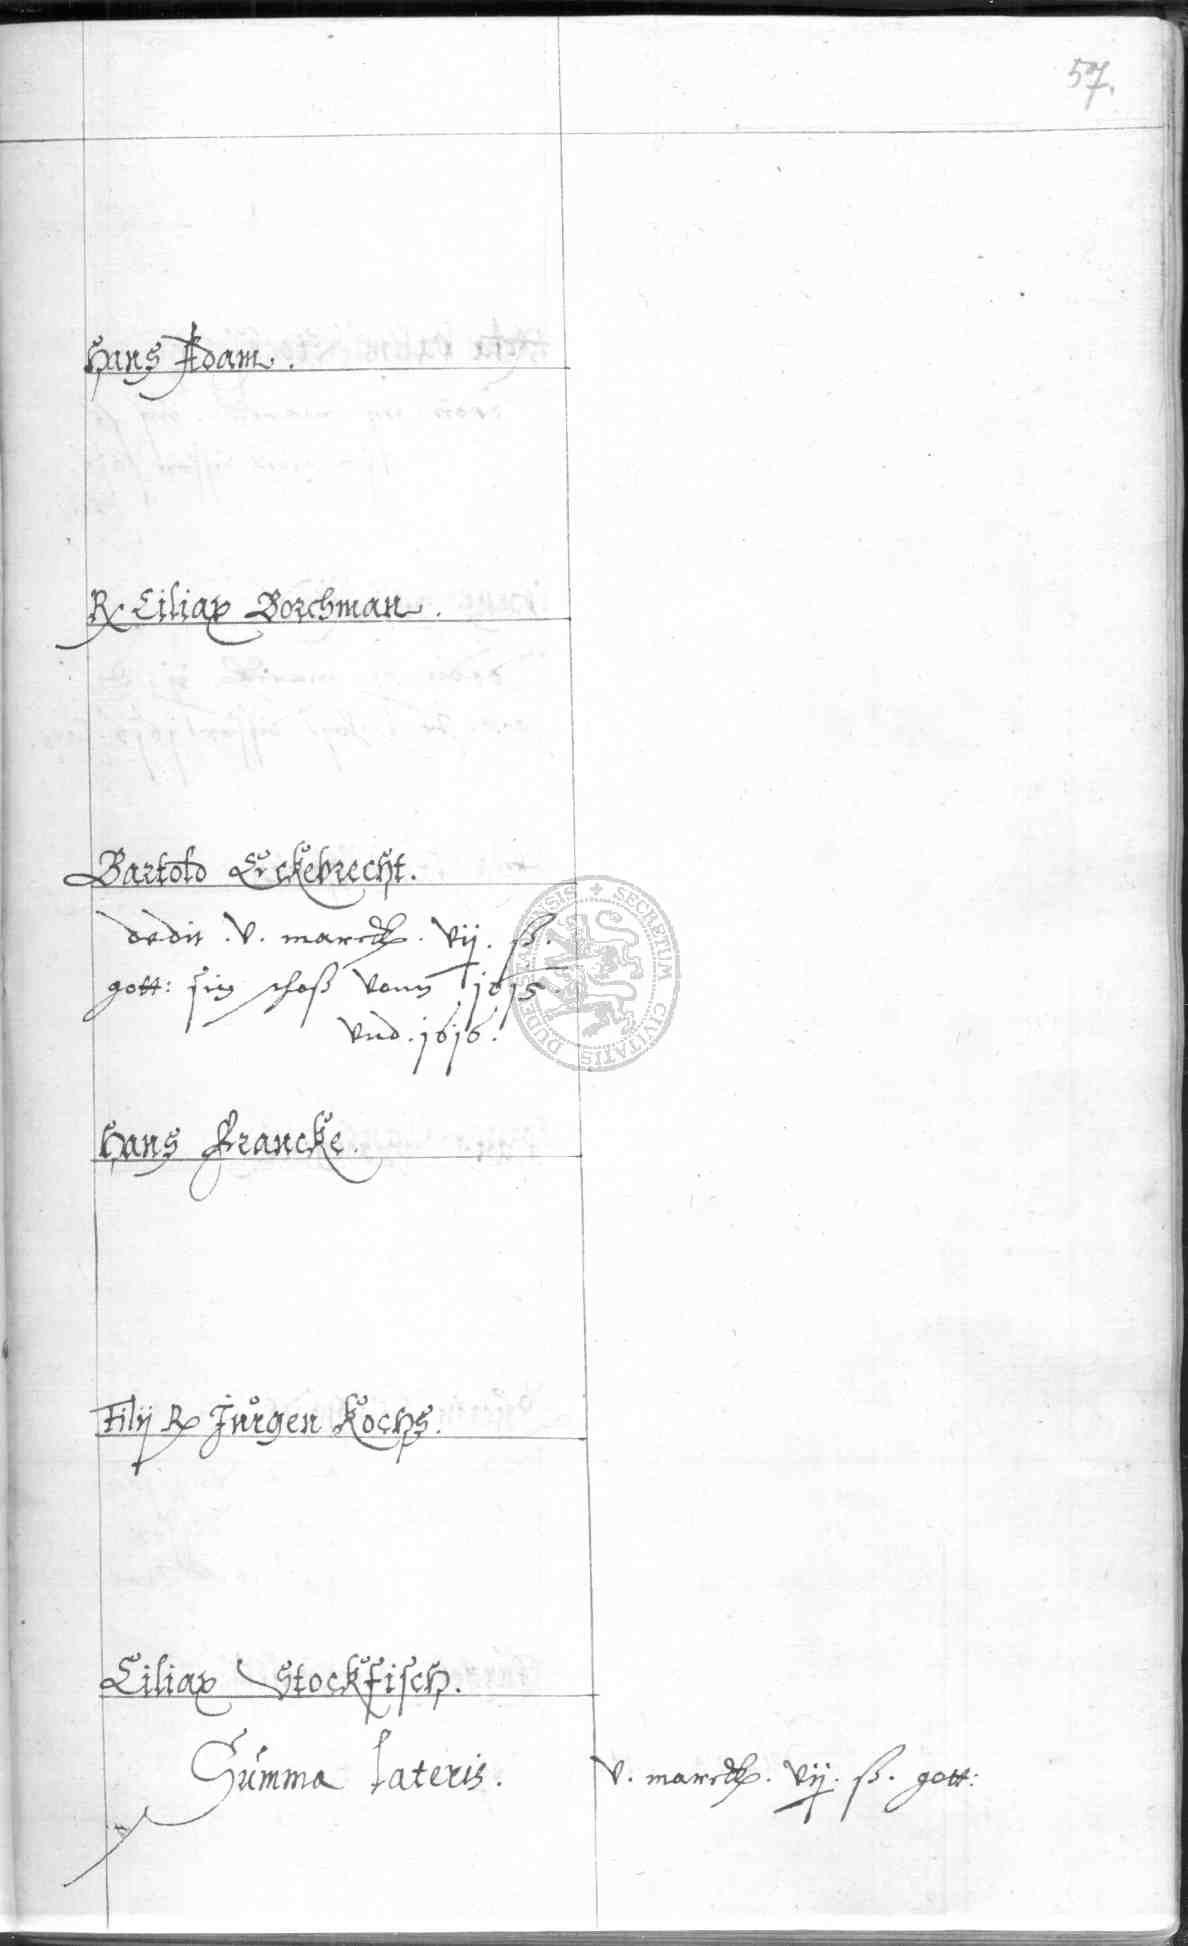 57.
Hans Adam.
R Ciliax Borchman.
Bartold Eckebrecht.
dedit . v. marck. vij. ß.
gott: sin schoß vonn 1615.
vnd . 1616.
Hans Francke.
Filij R Jurgen Kochs.
Ciliax Stockfisch.
Summa lateris. v. marck. vij. ß. gott:
SECRETUM CIVITATIS DUDERSTADENSIS